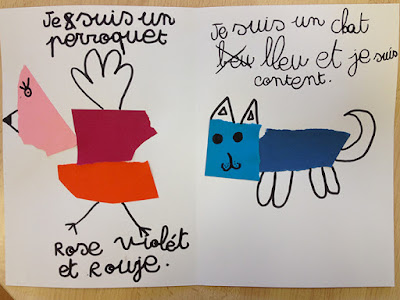 Je suis un
perroquet
Rose violét
et Rouje.
Je suis un chat
bleu et je suis
content.